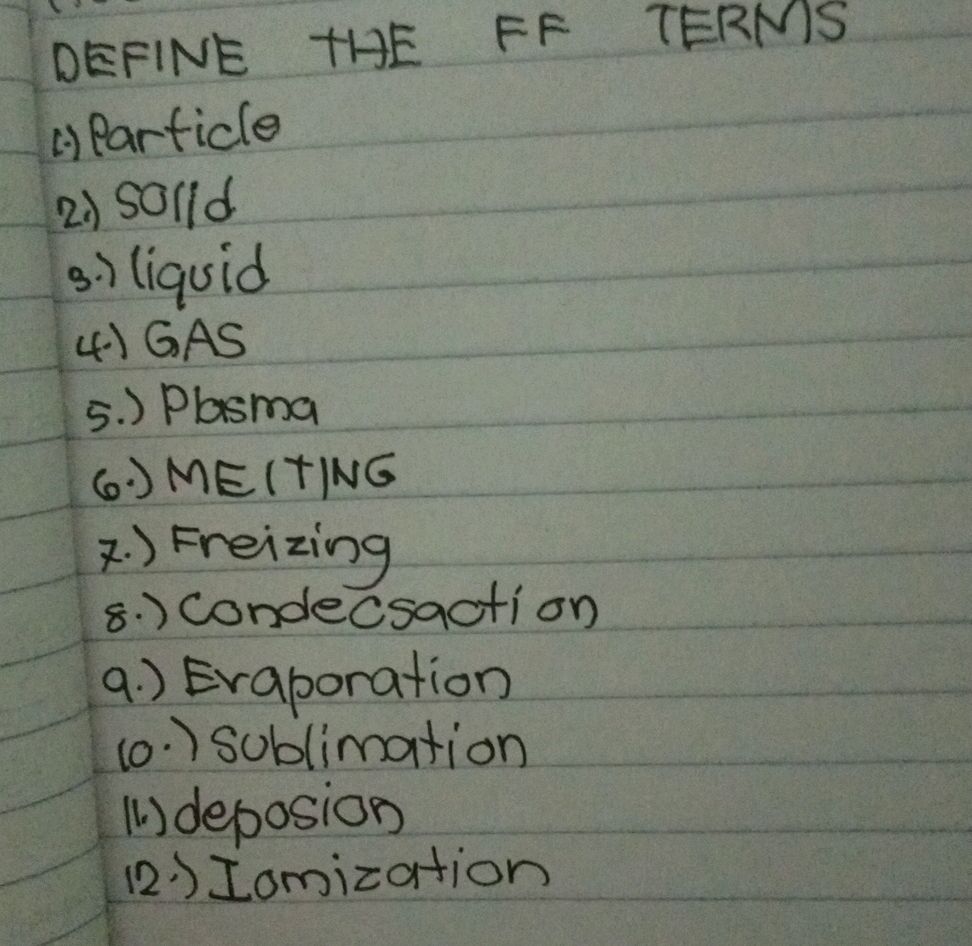 DEFINE THE FF TERMS
1.) Particle
2.) SOlId
3.) liquid
4.) GAS
5.) Plasma
6.) MElTING
7.) Freizing
8.) Condecsaction
9.) Evaporation
10.) Sublimation
11.) deposion
12.) Iomization